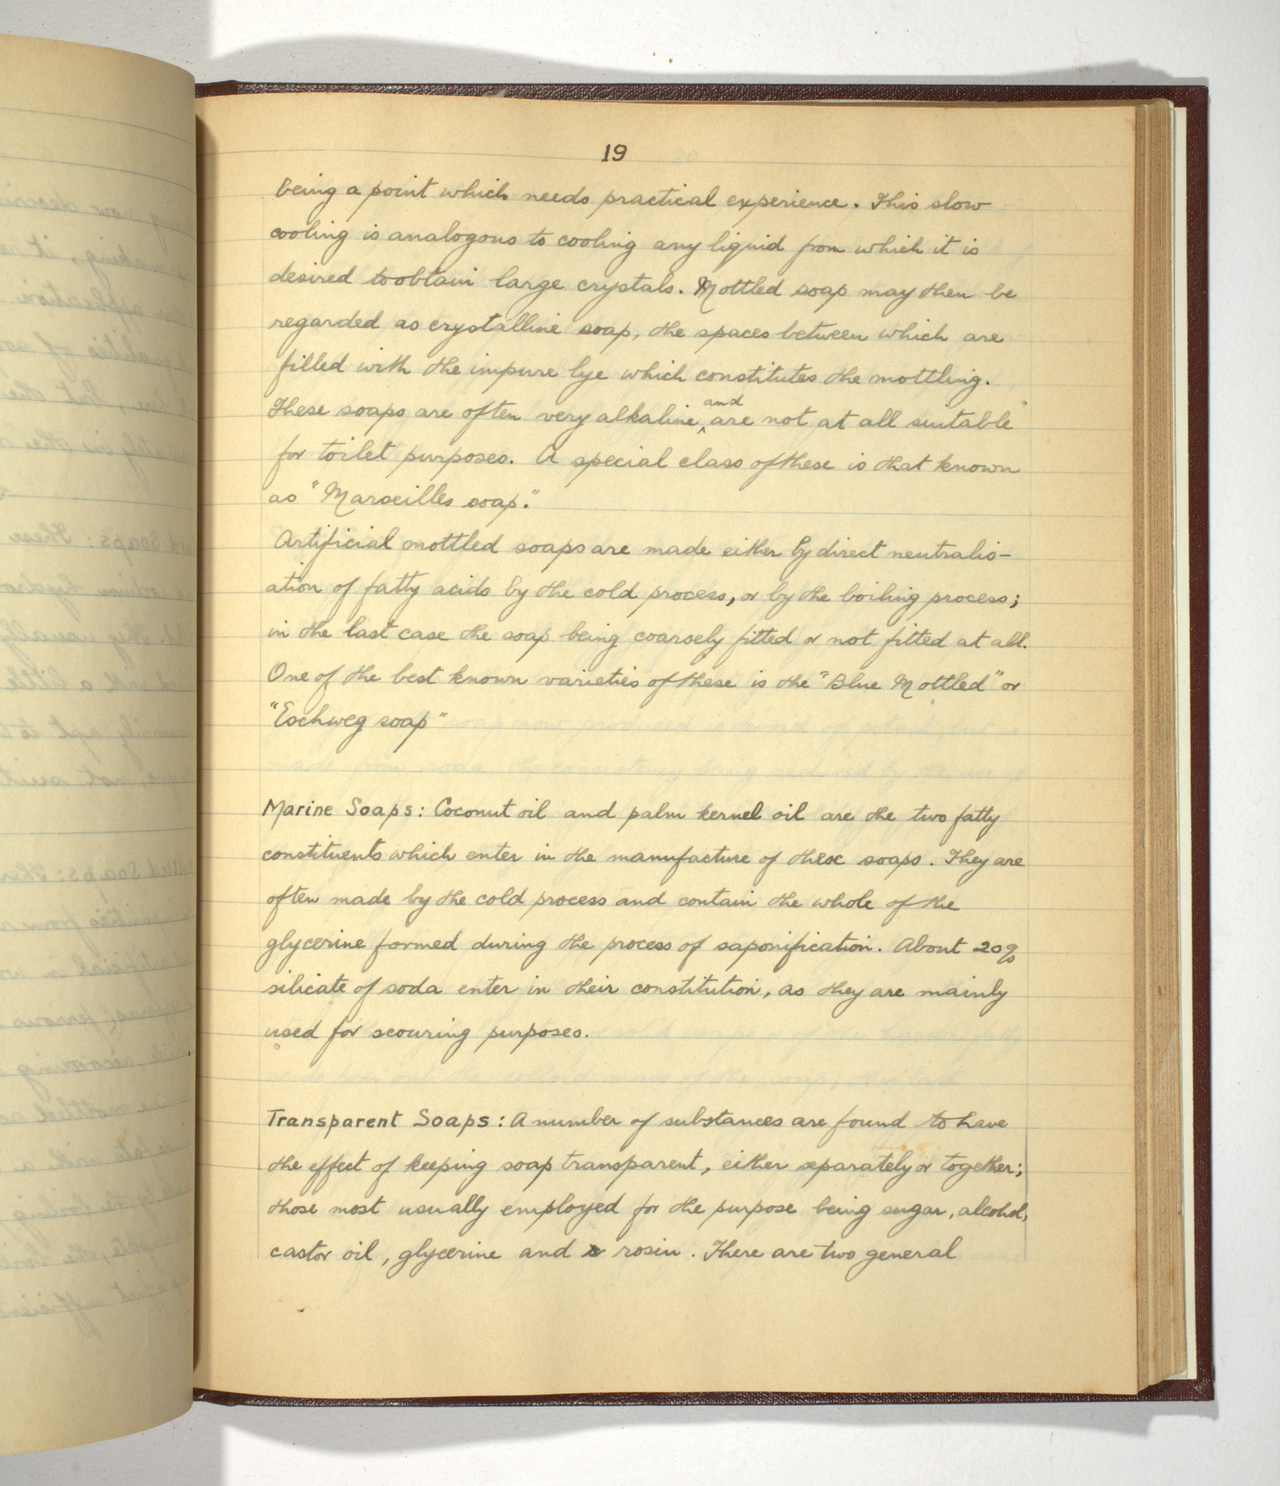 19
being a point which needs practical experience. This slow
cooling is analogous to cooling any liquid from which it is
desired to obtain large crystals. Mottled soap may then be
regarded as crystalline soap, the spaces between which are
filled with the impure lye which constitutes the mottling.
These soaps are often very alkaline and are not at all suitable
for toilet purposes. A special class of these is that known
as "Marseilles soap."
Artificial mottled soaps are made either by direct neutralis-
ation of fatty acids by the cold process, or by the boiling process;
in the last case the soap being coarsely fitted or not fitted at all.
One of the best known varieties of these is the "Blue Mottled" or
"Eschweg soap"
Marine Soaps: Coconut oil and palm kernel oil are the two fatty
constituents which enter in the manufacture of these soaps. They are
often made by the cold process and contain the whole of the
glycerine formed during the process of saponification. About 20%
silicate of soda enter in their constitution, as they are mainly
used for scouring purposes.
Transparent Soaps: A number of substances are found to have
the effect of keeping soap transparent, either separately or together;
those most usually employed for the purpose being sugar, alcohol,
castor oil, glycerine and rosin. There are two general